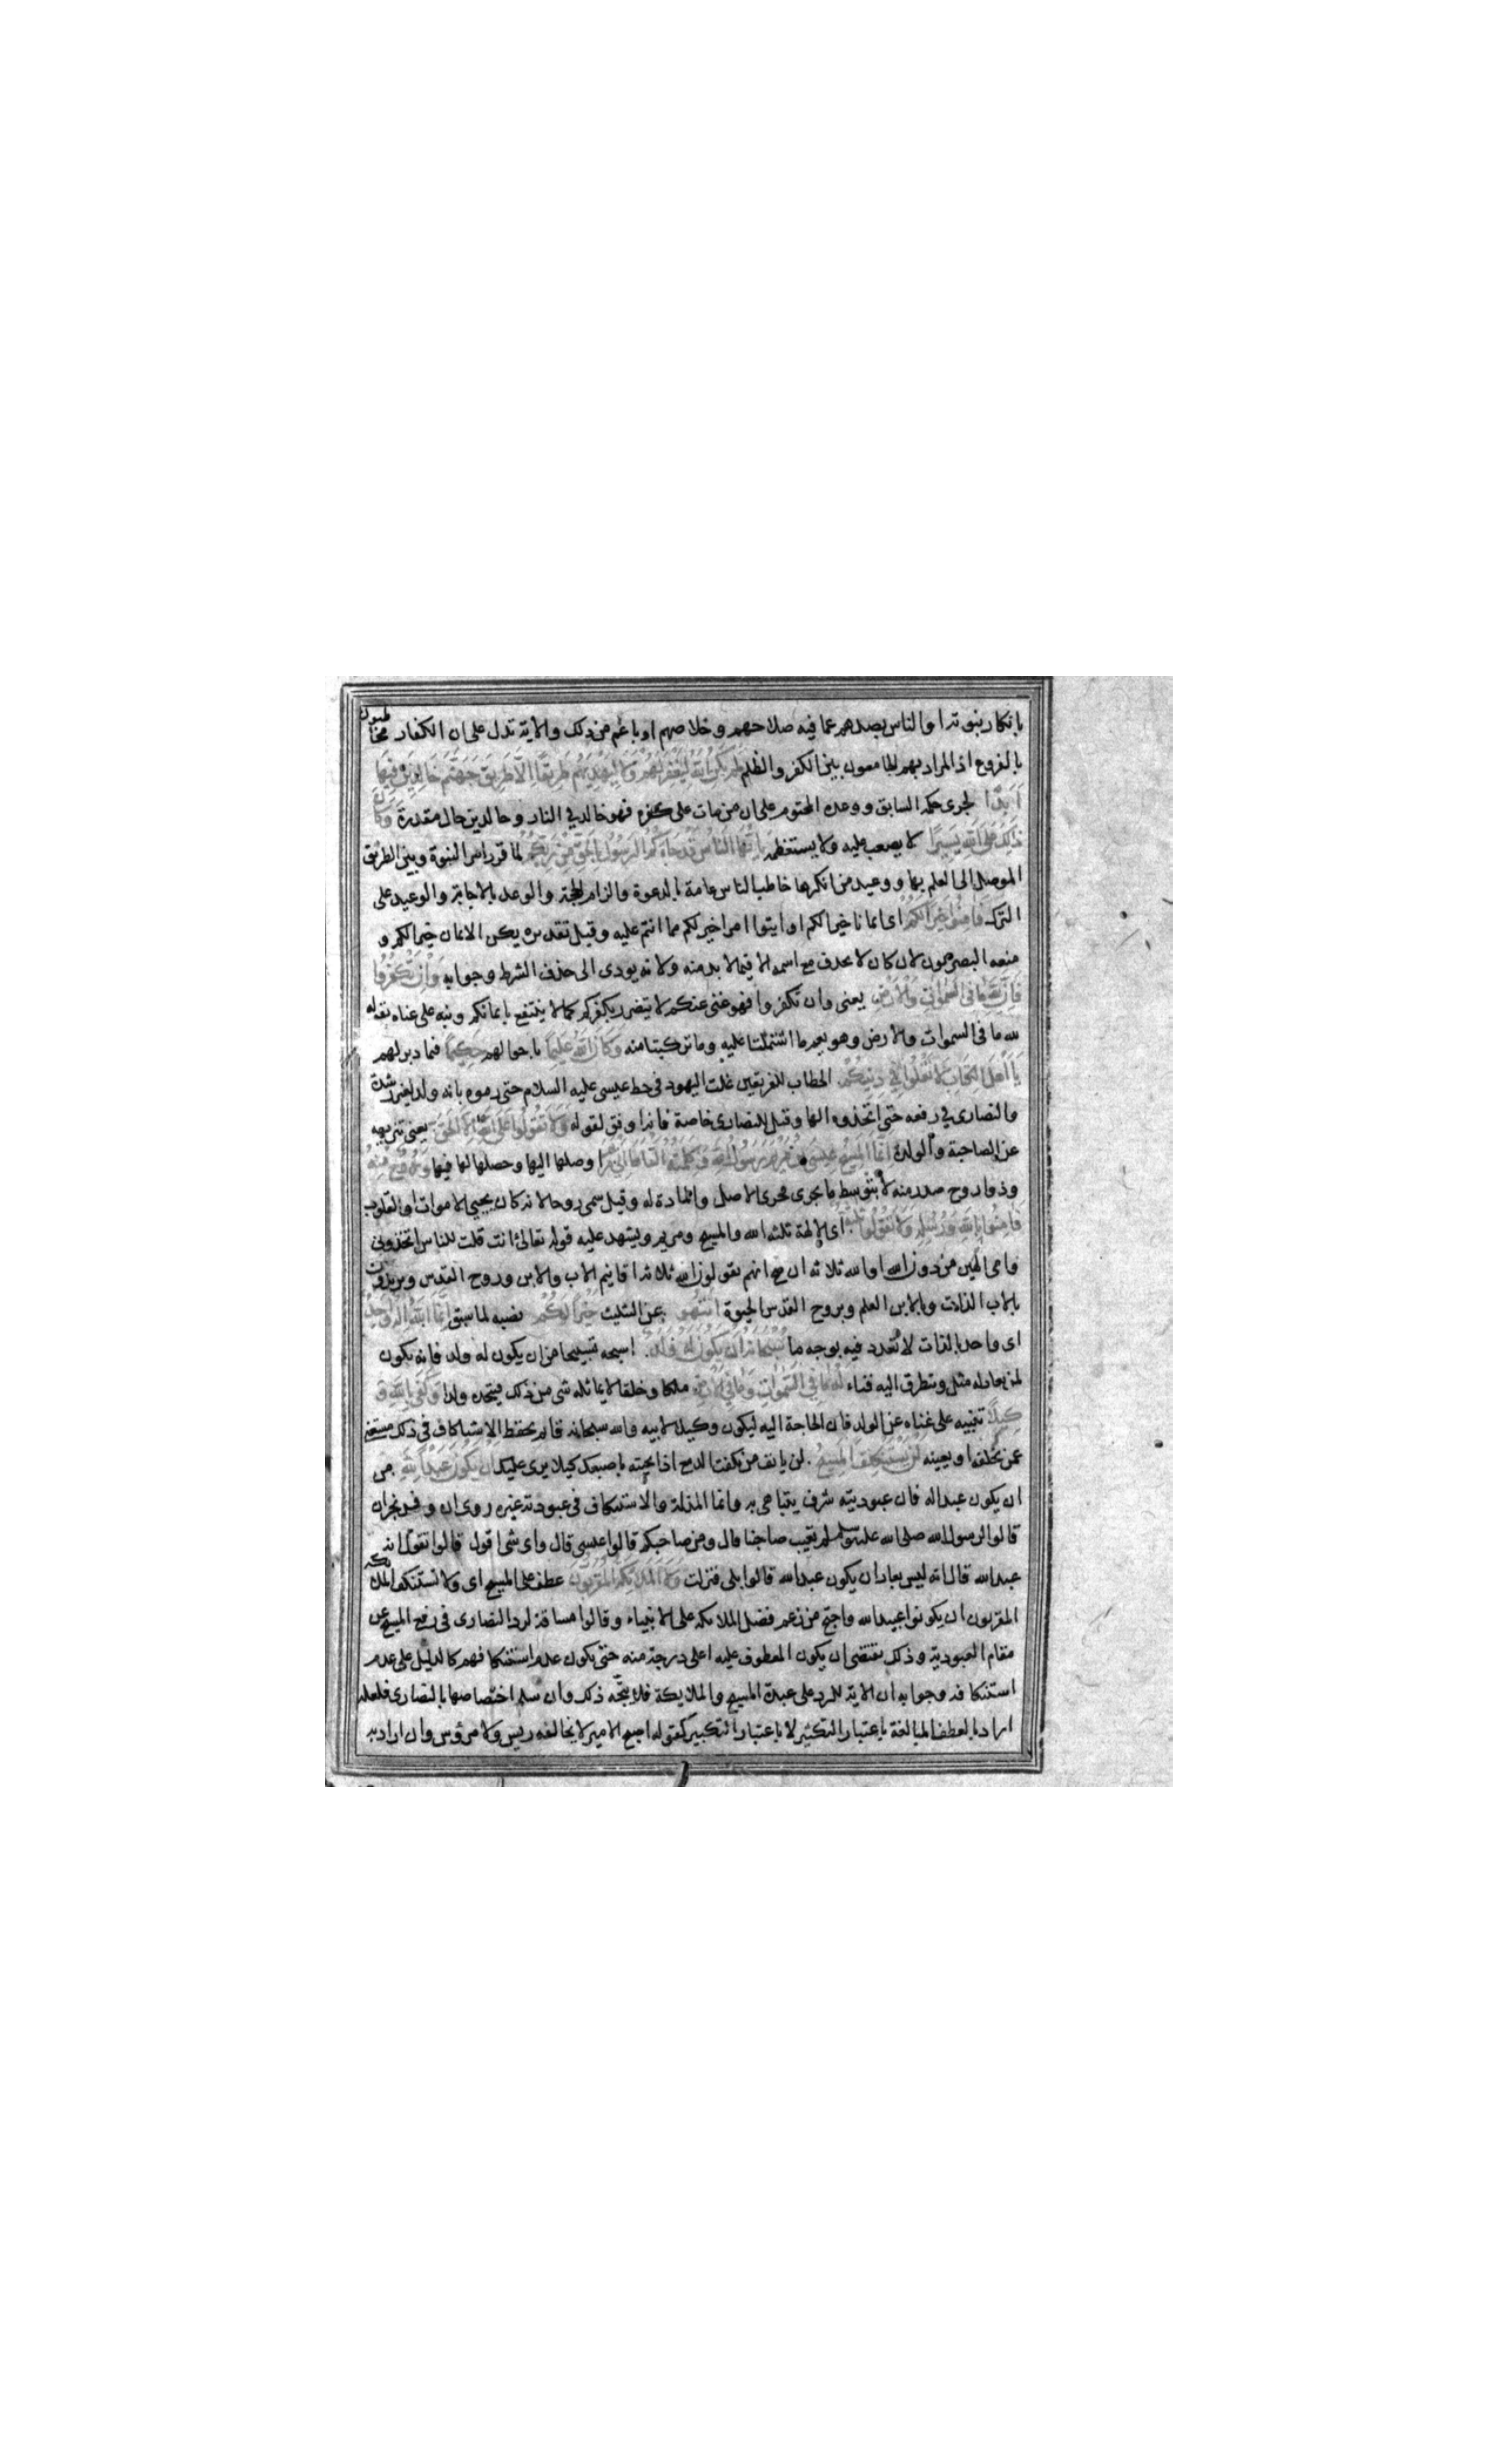 بانكار نبوته او الناس بصدهم عما فيه صلاحهم وخلاصهم او باعم من ذلك والآية تدل على ان الكفار مخاطبون
بالفروع اذ المراد بهم الجامعون بين الكفر والظلم لم يكن الله ليغفر لهم ولا ليهديهم طريقا الا طريق جهنم خالدين فيها
ابدا لجرى حكمه السابق ووعده المحتوم على ان من مات على كفره فهو خالد في النار وخالدين حال مقدرة وكان
ذلك على الله يسيرا لا يصعب عليه ولا يستعظمه يا ايها الناس قد جاءكم الرسول بالحق من ربكم لما قرر امر النبوة وبين الطريق
الموصل الى العلم بها ووعيد من انكرها خاطب الناس عامة بالدعوة والزام الحجة والوعد بالاجابة والوعيد على
الترك فامنوا خيرا لكم اى ايمانا خيرا لكم او ايتوا امرا خير لكم مما انتم عليه وقيل تقديره يكن الايمان خيرا لكم و
منعه البصريون لان كان لا يحذف مع اسمه الا فيما لا بد منه ولانه يودى الى حذف الشرط وجوابه وان تكفروا
فان لله ما فى السموات والارض يعنى وان تكفروا فهو غنى عنكم لا يتضرر بكفركم كما لا ينتفع بايمانكم ونبه على غناه بقوله
لله ما فى السموات والارض وهو يعم ما اشتملتا عليه وما تركبتا منه وكان الله عليما باحوالهم حكيما فيما دبر لهم
يا اهل الكتاب لا تغلوا في دينكم الخطاب للفريقين غلت اليهود فى حط عيسى عليه السلام حتى رموه بانه ولد لغير رشدة
والنصارى في رفعه حتى اتخذوه الها وقيل للنصارى خاصة فانه اوفق لقوله ولا تقولوا على الله الا الحق يعنى تنزيهه
عن الصاحبة والولد انما المسيح عيسى بن مريم رسول الله وكلمته القاها الى مريم اوصلها اليها وحصلها فيها وروح منه
وذو روح صدر منه لا بتوسط ما يجرى مجرى الاصل والمادة له وقيل سمى روحا لانه كان يحيى الاموات او القلوب
فامنوا بالله ورسله ولا تقولوا ثلثة اى الالهة ثلثة الله والمسيح ومريم ويشهد عليه قوله تعالى اانت قلت للناس اتخذوني
وامى الهين من دون الله او الله ثلاثة ان صح انهم يقولون الله ثلاثة اقانيم الاب والابن وروح القدس ويريدون
بالاب الذات وبالابن العلم وبروح القدس الحيوة انتهوا عن التثليث خيرا لكم نصبه لما سبق انما الله اله واحد
اى واحد بالذات لا تعدد فيه بوجه ما سبحانه ان يكون له ولد اسبحه تسبيحا من ان يكون له ولد فانه يكون
لمن يعادله مثل ويتطرق اليه فناء له ما في السموات وما في الارض ملكا وخلقا لا يماثله شى من ذلك فيتخذه ولدا وكفى بالله و
كيلا تنبيه على غناه عن الولد فان الحاجة اليه ليكون وكيلا لابيه والله سبحانه قائم بحفظ الاشيا كاف فى ذلك مستغن
عمن يخلفه او يعينه لن يستنكف المسيح لن يانف من نكفت الدمع اذا نحيته باصبعك كيلا يرى عليك ان يكون عبدا لله من
ان يكون عبدا له فان عبوديته شرف يتباهى به وانما المذلة والاستنكاف فى عبودية غيره روى ان وفد نجران
قالوا لرسول الله صلى الله عليه وسلم لم تعيب صاحبنا قال ومن صاحبكم قالوا عيسى قال واى شى اقول قالوا تقول انه
عبد الله قال انه ليس بعار ان يكون عبد الله قالوا بلى فنزلت ولا الملائكة المقربون عطف على المسيح اى ولا تستنكف الملائكة
المقربون ان يكونوا عبيدا لله واحتج من زعم فضل الملائكة على الانبياء وقالوا مساقه لرد النصارى فى رفع المسيح عن
مقام العبودية وذلك يقتضى ان يكون المعطوف عليه اعلى درجة منه حتى يكون عدم استنكافهم كالدليل على عدم
استنكافه وجوابه ان الاية للرد على عبدة المسيح والملايكة فلا يتجه ذلك وان سلم اختصاصها بالنصارى فلعله
اراد بالعطف المبالغة باعتبار التكثير لا باعتبار التكبير كقوله اصبح الامير لا يخالفه ريس ولا مرؤس وان اراد به